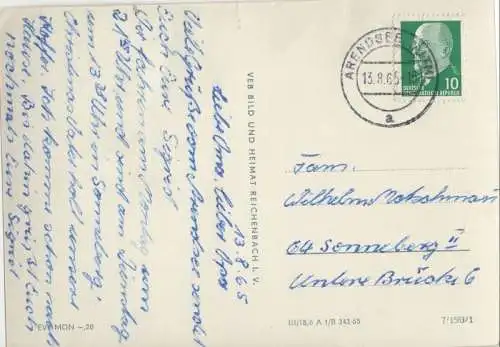 13.8.65
Liebe Oma lieber Opa
Viele Grüße vom Arendsee sendet
Euch Eure Sigrid
Wir fahren am Montag um
21 Uhr und sind am Dienstag
um 13 Uhr in Sonneberg.
Vater holt unsere
Koffer. Ich komme schon nach
Hause. Bis dahin grüßt Euch
nochmals Eure
Sigrid
EVP MDN -,20
VEB BILD UND HEIMAT REICHENBACH I. V.
ARENDSEE
13.8.65
a
DEUTSCHE
DEMOKRATISCHE REPUBLIK
10
Fam.
Wilhelm
64 Sonneberg II
Untere Brück 6
III/18,6 A 1/B 343 65
7/1553/1